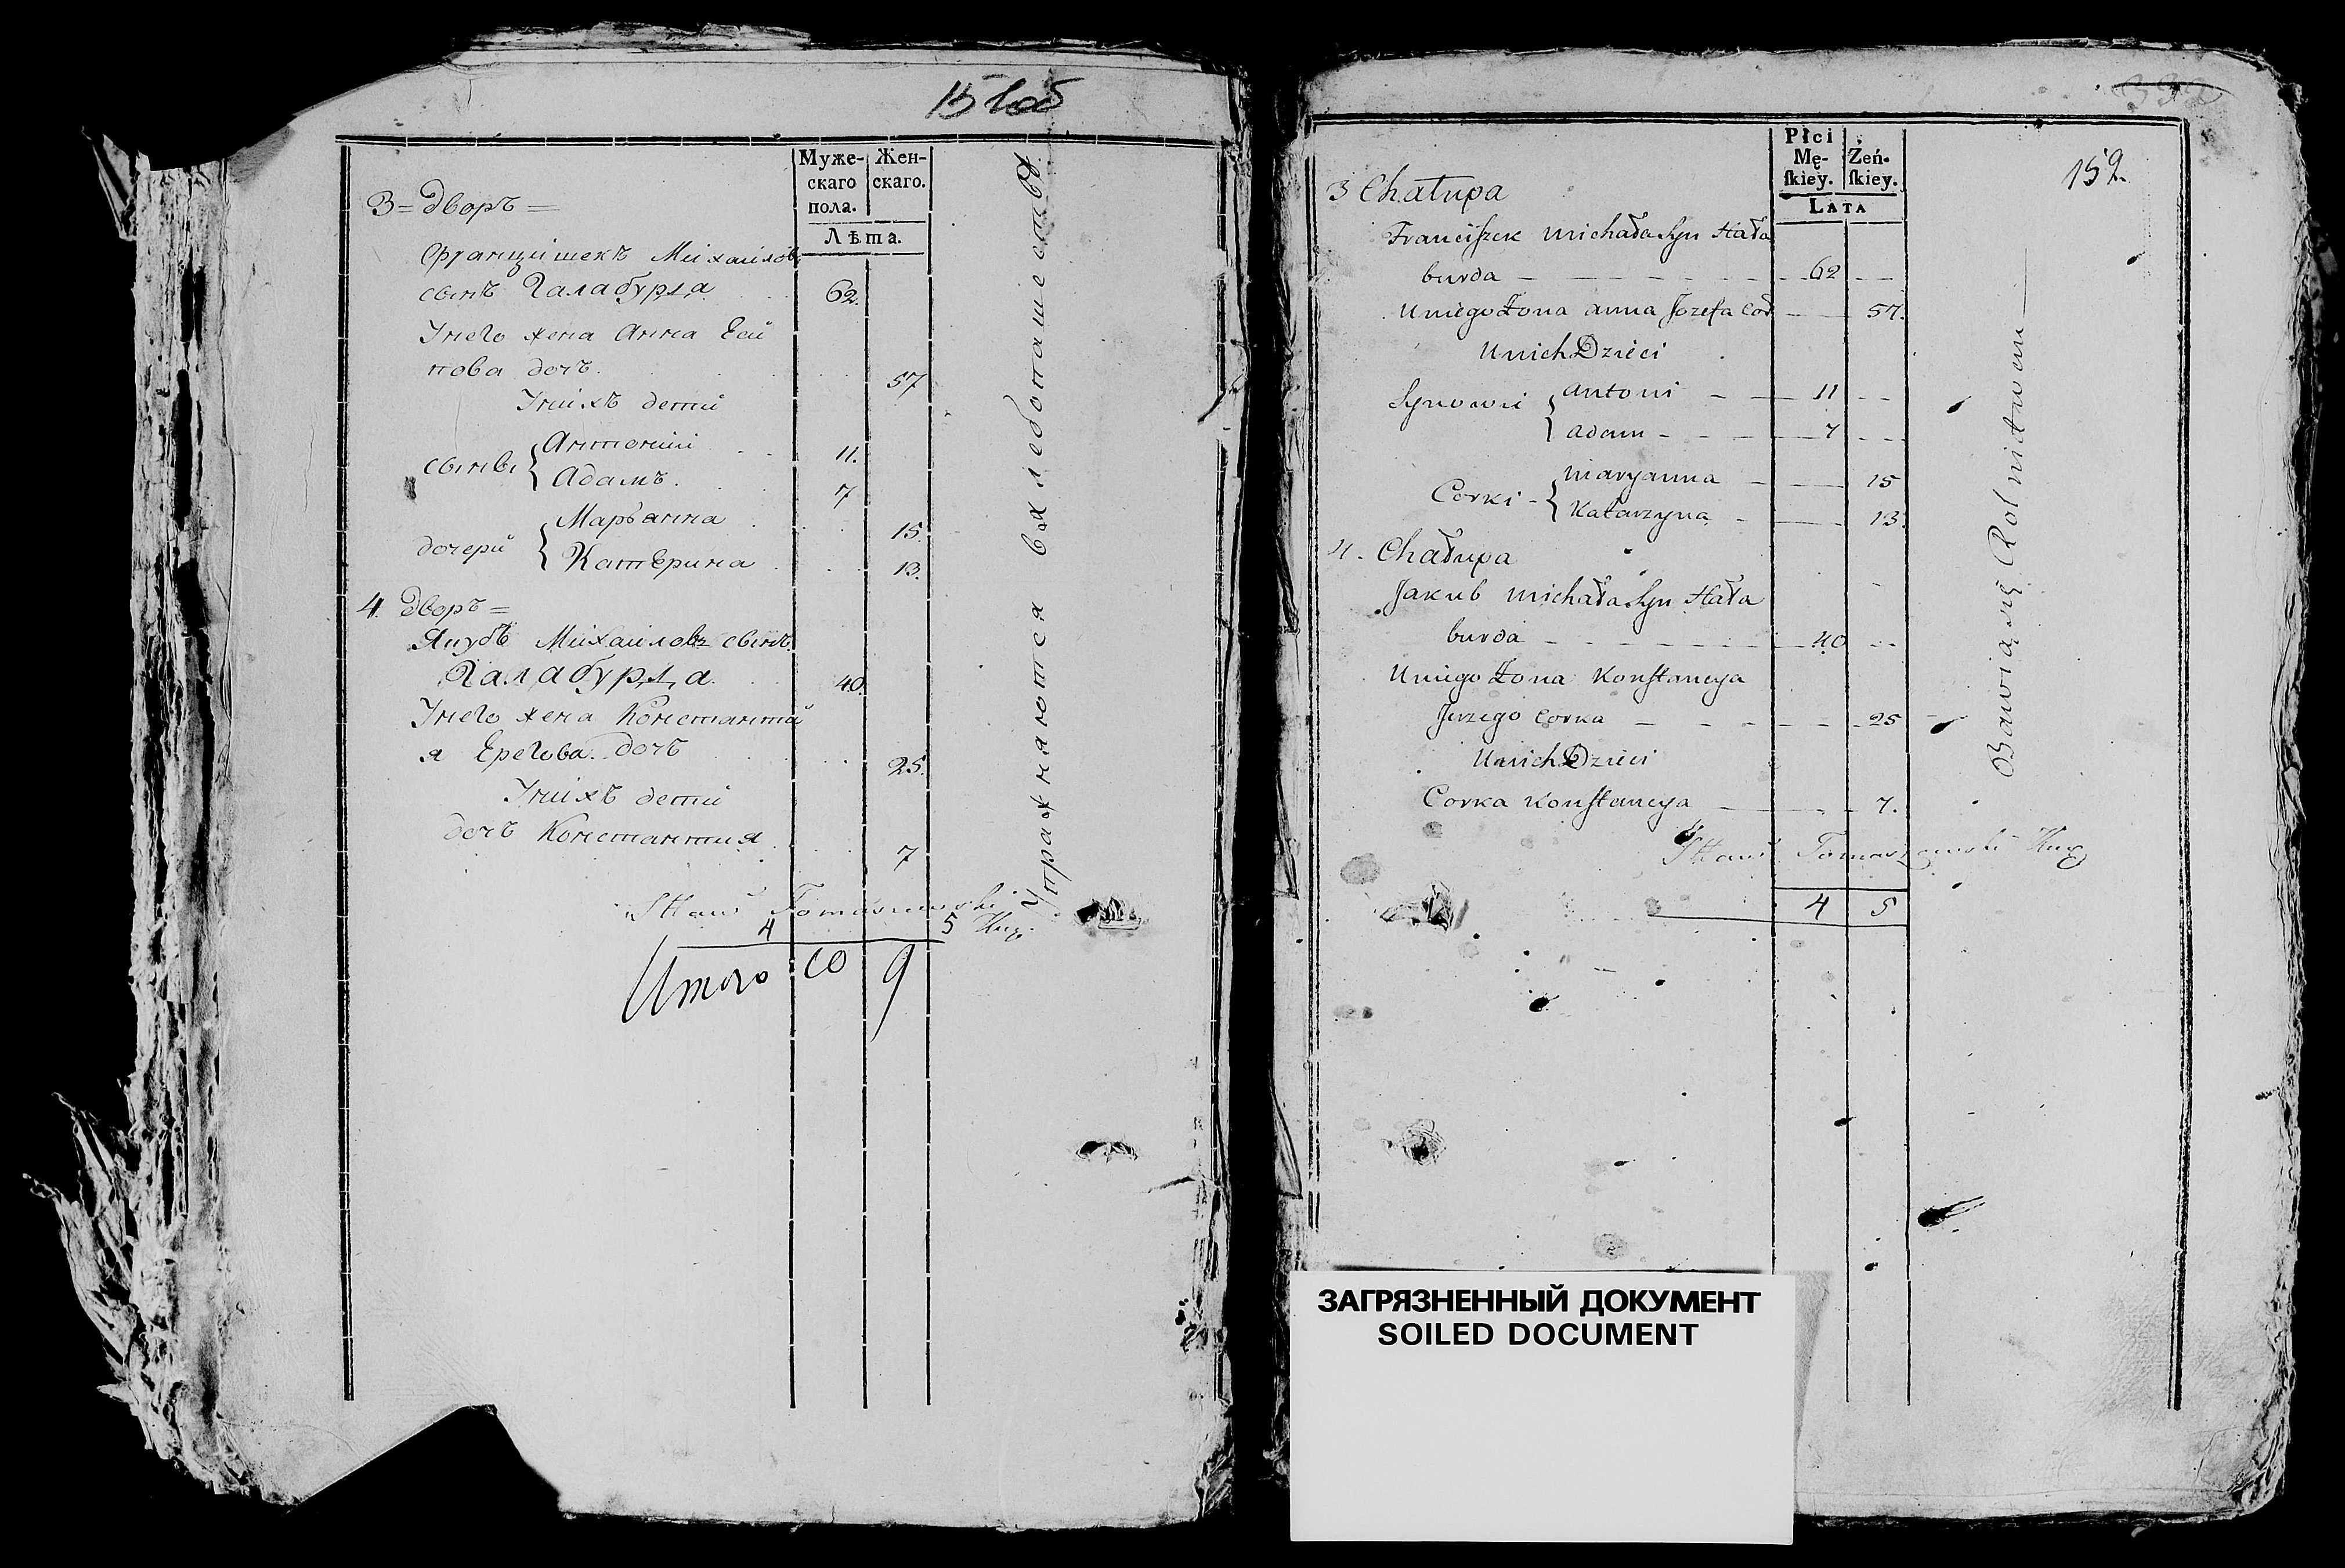 151 об
Муже-
скаго
пола.
Жен-
скаго.
Лѣта.
3 = Дворъ =
Францишекъ Михаиловъ
сынъ Галабурда 62.
У него жена Анна Еси
пова дочь. 57
У нихъ дети
сынвы { Антоний 11.
Адамъ. 7
дочери { Марьянна 15.
Катерина 13.
4. Дворъ =
Якубъ Михаиловъ сынъ
Галабурда 40.
У него жена Константи
я Ерегова дочь 25.
У нихъ дети
дочь Константия 7
Упражняются в хлебопашестве.
Tomaszewski
4 5
Итого 10 9
152.
Płci
Mę-
ſkiey.
Żeń-
ſkiey.
LATA
3 Chałupa
Franciſzek Michała Syn Hała
burda 62
U niego Żona Anna Jozefa Cor 57.
U nich Dzieci
Synowie { Antoni 11
Adam 7
Corki { Maryanna 15
Katarzyna 13.
4. Chałupa
Jakub Michała Syn Hała
burda 40
U niego Żona Konſtancya
Jerzego Corka 25
U nich Dzieci
Corka Konſtancya 7.
Bawią się Rolnictwem
Tomaszewski
4 5
ЗАГРЯЗНЕННЫЙ ДОКУМЕНТ
SOILED DOCUMENT